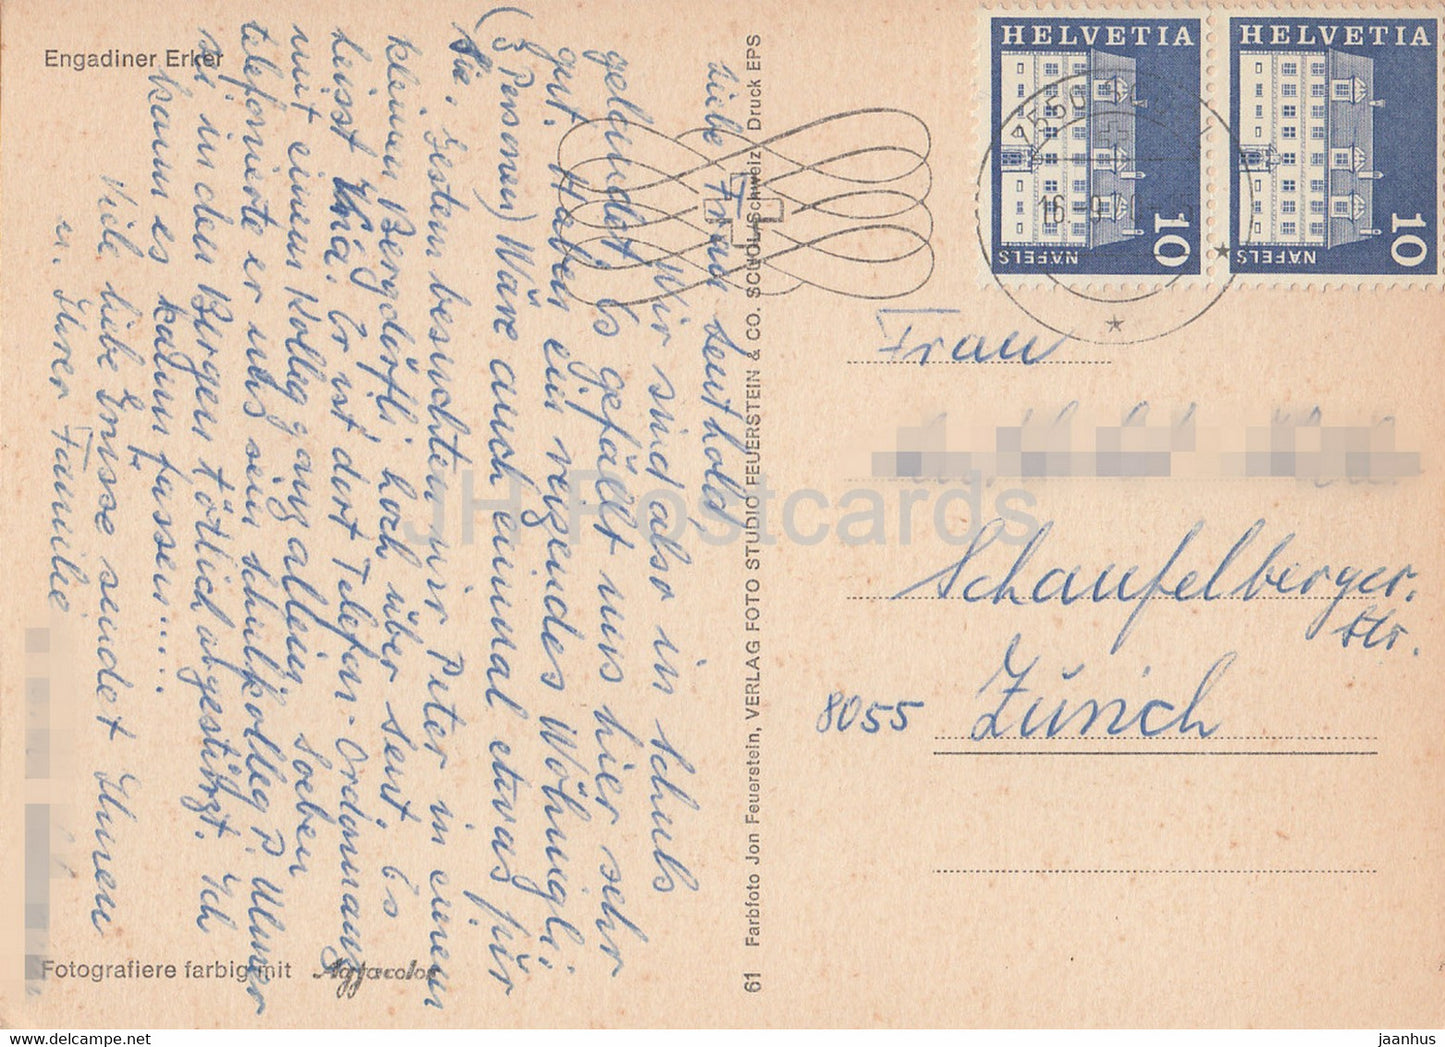 Engadiner Erker
Liebe Frau Leuthold,
Wir sind also in Schuls
gelandet. Es gefällt uns hier sehr
gut. Haben ein reizendes Wöhnigli
(3 Personen) Wäre auch einmal etwas für
Sie. Gestern besuchten wir Peter in einem
kleinen Bergdörfli hoch über Sent. Es
heisst Vnà. Er ist dort Telefon-Ordonnanz
mit einem Kolleg ganz allein. Soeben
telefonierte er uns sein Schulkolleg P. Ulmer
sei in den Bergen tötlich abgestürzt. Ich
kann es kaum fassen....
Viele liebe Grüsse sendet Ihnen
u. Ihrer Familie
Fotografiere farbig mit Agfacolor
61 Farbfoto Jon Feuerstein, VERLAG FOTO STUDIO FEUERSTEIN & CO. SCUOL/Schweiz Druck EPS
HELVETIA
10
NÄFELS
HELVETIA
10
NÄFELS
16.-9.
Frau
Schaufelberger-
str.
8055 Zürich
JH Postcards
www.delcampe.net
jaanhus